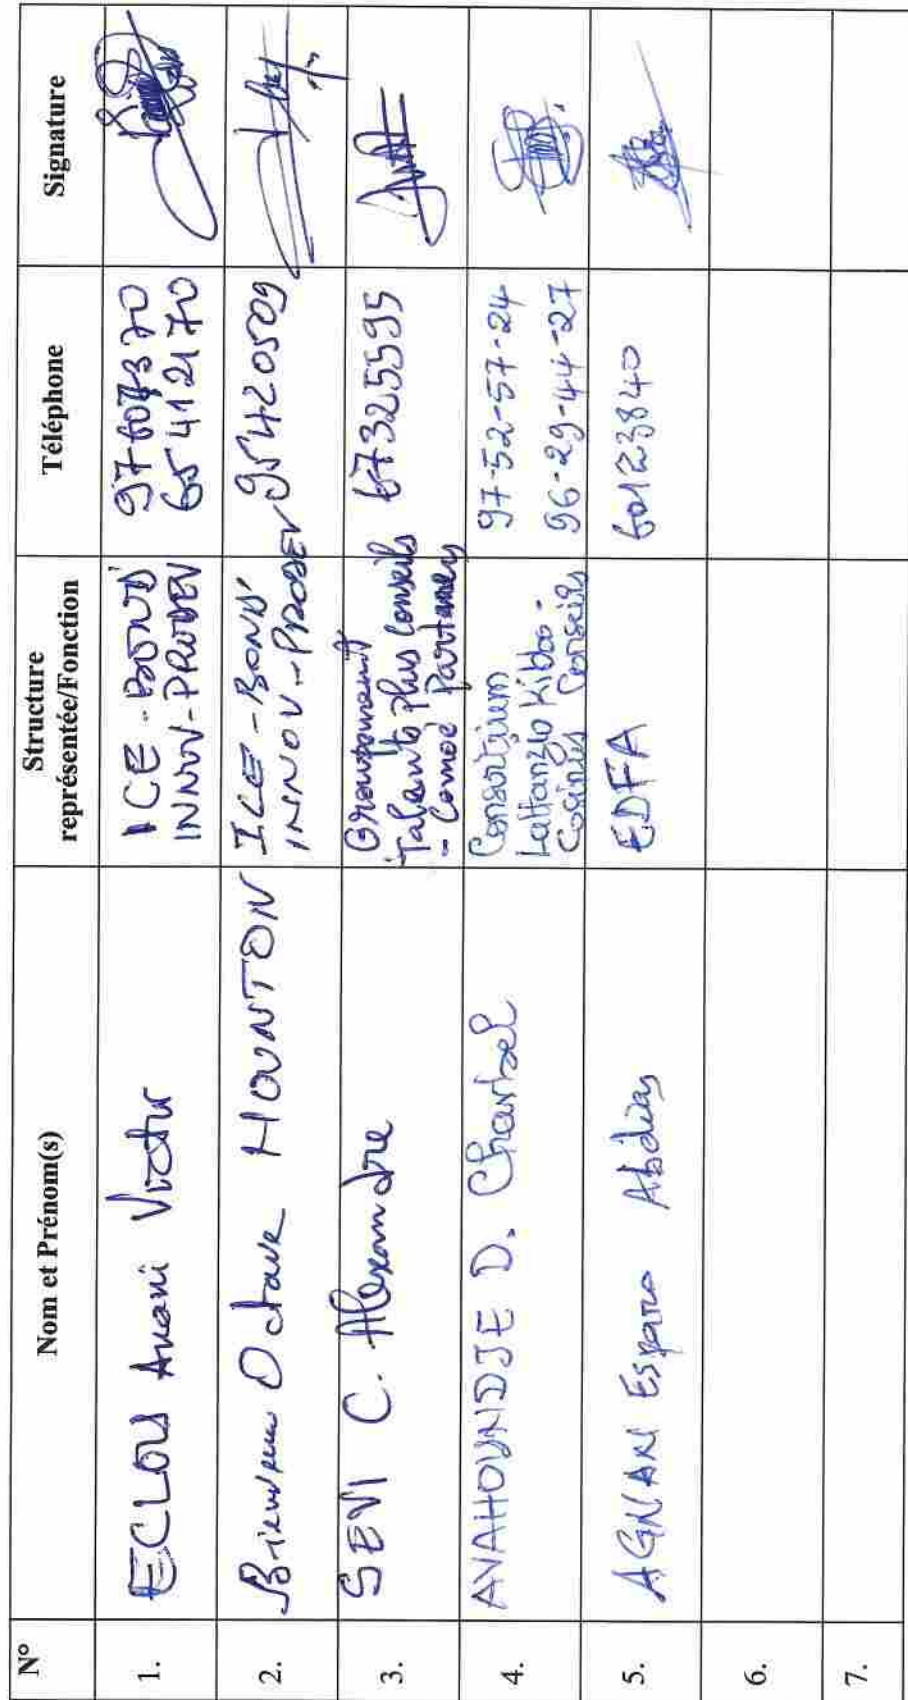 N°
Nom et Prénom(s)
Structure
représentée/Fonction
Téléphone
Signature
1.
ECLOU Anani Victor
ICE-BOND'
INNOV-PRODEV
65412170
2.
Bienvenu Octave HOUNTON
ICE-BOND'
INNOV-PRODEV
95420509
3.
SEVI C. Alexandre
Groupement
Talents Plus Conseils
- Comoé Partners
67325595
4.
AVAHOUNDJE D. Charbel
Consortium
Lattanzio Kibbo-
Cosinus Conseils
97-52-57-24
96-29-44-27
5.
AGNANI Espara Abdias
EDFA
60123840
6.
7.